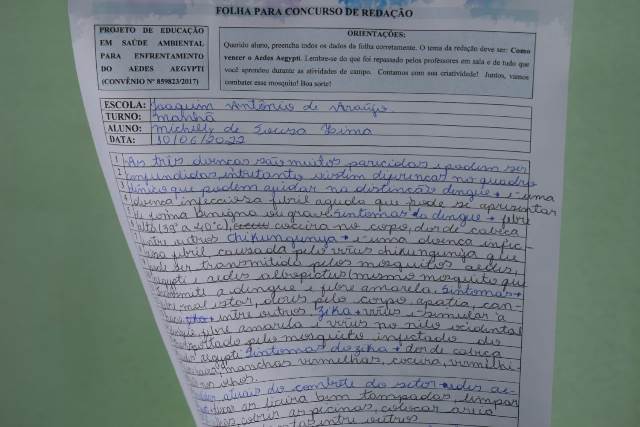 FOLHA PARA CONCURSO DE REDAÇÃO
PROJETO DE EDUCAÇÃO
EM SAÚDE AMBIENTAL
PARA ENFRENTAMENTO
DO AEDES AEGYPTI
(CONVÊNIO Nº 859823/2017)
ORIENTAÇÕES:
Querido aluno, preencha todos os dados da folha corretamente. O tema da redação deve ser: Como
vencer o Aedes Aegypti. Lembre-se do que foi repassado pelos professores em sala e de tudo que
você aprendeu durante as atividades de campo. Contamos com sua criatividade! Juntos, vamos
combater esse mosquito! Boa sorte!
ESCOLA: Joaquim Antônio de Araújo
TURNO: manhã
ALUNO: michelly de Sousa Lima
DATA: 10/06/2022
1 As três doenças são muitos parecidas e podem ser
2 confundidas, intretanto existim diferenças no quadro
3 clínico que podem ajudar na distinção dengue → é uma
4 doença infecciosa febril aguda que pode se apresentar
de forma benigna ou grave sintomas da dengue → febre
alta (39° a 40°c), coceira no corpo, dor de cabeça
entre outros chikungunya → é uma doença infec-
ciosa febril causada pelo vírus chikungunya que
pode ser transmitido pelos mosquitos aedes,
egypti e aedes albopictus (mesmo mosquito que
transmite a dengue e febre amarela. Sintomas →
febre, mal estar, dores pelo corpo, apatia, can-
entre outros. Zika → vírus é similar a
dengue, febre amarela e vírus no nilo ocidental
pelo mosquito infectado do
egypti Sintomas do zika → dor de cabeça
manchas vermelhas, coceira, vermelhi-
nos olhos.
atuais do controle do setor aedes ae-
a lixeira bem tampadas, limpar
cobrir as picinas, colocar areia
entre outros